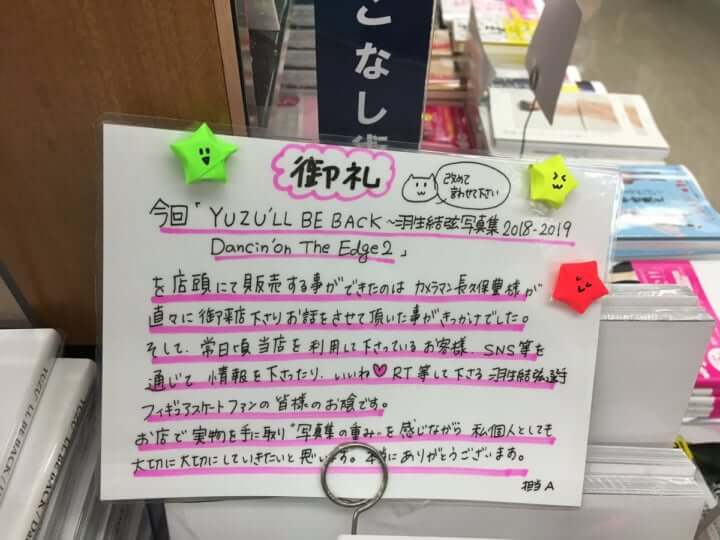 こなし術
御礼
改めて
言わせて下さい
今回「YUZU'LL BE BACK〜羽生結弦写真集2018-2019
Dancin'on The Edge2」
を店頭にて販売する事ができたのは カメラマン長久保豊様が
直々に御来店下さりお話をさせて頂いた事がきっかけでした。
そして、常日頃当店を利用して下さっているお客様、SNS等を
通じて 情報を下さったり、いいね♥RT等して下さる羽生結弦選手
フィギュアスケートファンの皆様のお陰です。
お店で実物を手に取り"写真集の重み"を感じながら 私個人としても
大切に大切にしていきたいと思います。本当にありがとうございます。
担当A
YUZU'LL BE BACK
YUZU'LL BE BACK Da